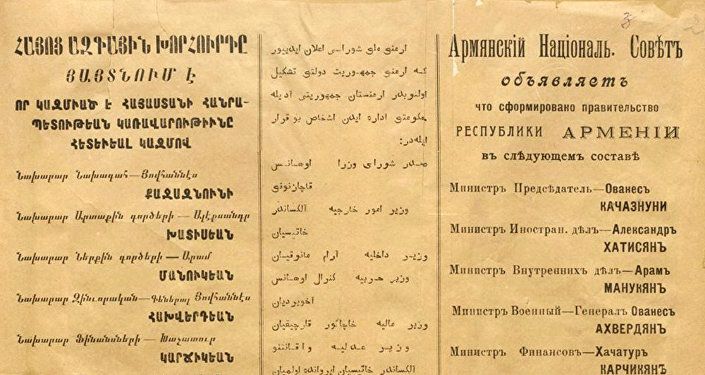 ՀԱՅՈՑ ԱԶԳԱՅԻՆ ԽՈՐՀՈՒՐԴԸ
ՅԱՅՏՆՈՒՄ Է
ՈՐ ԿԱԶՄԻԱԾ Է ՀԱՅԱՍՏԱՆԻ ՀԱՆՐԱ-
ՊԵՏՈՒԹԵԱՆ ԿԱՌԱՎԱՐՈՒԹԻՒՆԸ
ՀԵՏԵՒԵԱԼ ԿԱԶՄՈՎ
Նախարար Նախագահ—Յովհաննէս
ՔԱՋԱԶՆՈՒՆԻ
Նախարար Արտաքին գործերի—Ալէքսանդր
ԽԱՏԻՍԵԱՆ
Նախարար Ներքին գործերի—Արամ
ՄԱՆՈՒԿԵԱՆ
Նախարար Զինւորական—Գեներալ Յովհաննէս
ՀԱԽՎԵՐԴԵԱՆ
Նախարար Ֆինանսների—Խաչատուր
ԿԱՐՃԻԿԵԱՆ
ارمنی ملی شوراسی اعلان ایدییور
که ارمنی جمهوریت دولتی تشکیل
اولنوبدر ارمنستان جمهوریتی آدیله
حکومتی اداره ایدن اشخاص بو قرار
ایله‌در:
صدر شورای وزرا اوهانس
قاچازنونی
وزیر امور خارجیه الکساندر
خاتیسیان
وزیر داخلیه آرام مانوقیان
وزیر حربیه کنرال اوهانس
اخویردیان
وزیر مالیه خاچاتور قارچیقیان
وزیر عدلیه
الکساندر خاتیسیان
Армянскій Націоналъ. Совѣтъ
объявляетъ
что сформировано правительство
РЕСПУБЛИКИ АРМЕНІИ
въ слѣдующемъ составѣ
Министръ Предсѣдатель—Ованесъ
КАЧАЗНУНИ
Министръ Иностран. дѣлъ—Александръ
ХАТИСЯНЪ
Министръ Внутреннихъ дѣлъ—Арамъ
МАНУКЯНЪ
Министръ Военный—Генералъ Ованесъ
АХВЕРДЯНЪ
Министръ Финансовъ—Хачатуръ
КАРЧИКЯНЪ